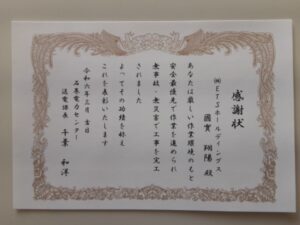 感謝状
㈱ETSホールディングス
國實 翔陽 殿
あなたは厳しい作業環境のもと
安全最優先で作業を進められ
無事故・無災害で工事を完工
されました
よってその功績を称え
これを表彰いたします
令和六年三月吉日
石巻電力センター
送電課長 千葉 和洋